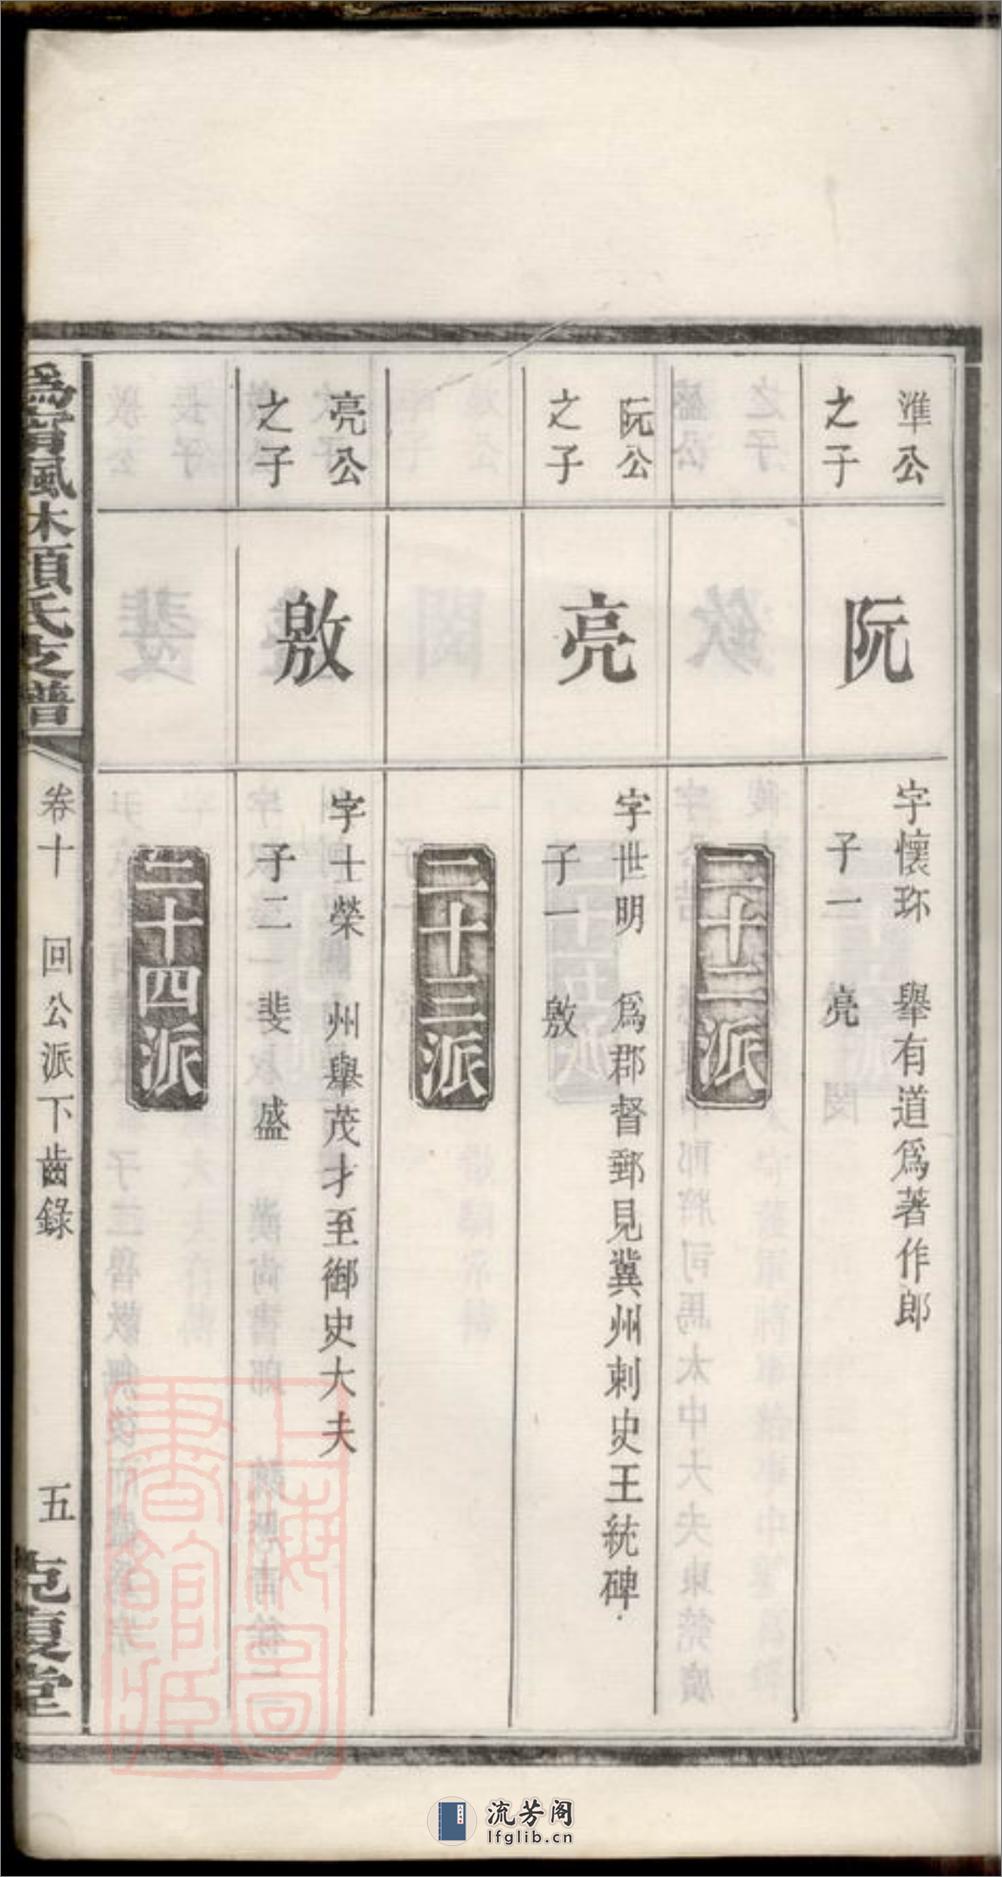 準公
之子
阮
字懷珎　舉有道爲著作郎
子一　亮
二十二派
阮公
之子
亮
字世明　爲郡督郵見冀州刺史王統碑
子一　敫
二十三派
亮公
之子
敫
字士榮　州舉茂才至御史大夫
子二　斐　盛
二十四派
風林顏氏支譜
卷十　回公派下齒錄
五　克復堂
上海圖書館藏
流芳阁
lfglib.cn